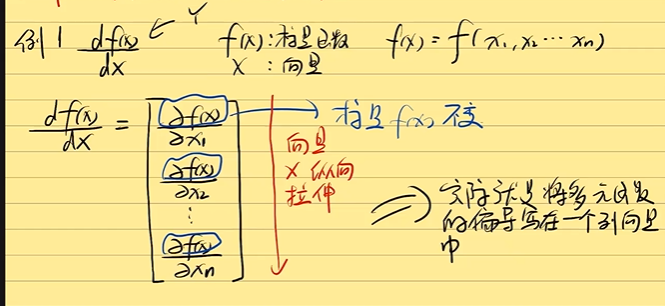 例1 df(x)/dx ← Y f(x):标量函数 f(x) = f(x₁,x₂⋯xₙ)
X :向量
df(x)/dx = [∂f(x)/∂x₁ → 标量f(x)不变
∂f(x)/∂x₂
⋮
∂f(x)/∂xₙ]
向量
X 纵向
拉伸
⇒ 实际就是将多元函数
的偏导写在一个列向量
中